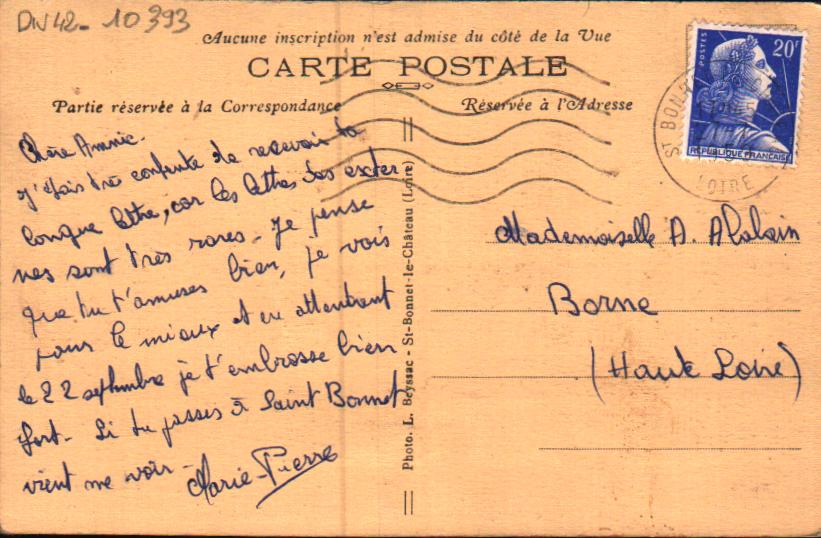 DN42- 10393
Aucune inscription n'est admise du côté de la Vue
CARTE POSTALE
Partie réservée à la Correspondance
Réservée à l'Adresse
Chère Annie.
J'étais très contente de recevoir ta
longue lettre, car les lettres des exter-
nes sont très rares. Je pense
que tu t'amuses bien, je vois
pour le mieux et en attendant
le 22 septembre je t'embrasse bien
fort. Si tu passes à Saint Bonnet
vient me voir.
Marie-Pierre
Photo. L. Beyssac - St-Bonnet-le-Château (Loire)
POSTES
20F
REPUBLIQUE FRANCAISE
ST BONN
LOIRE
Mademoiselle A.
Borne
(Haute Loire)